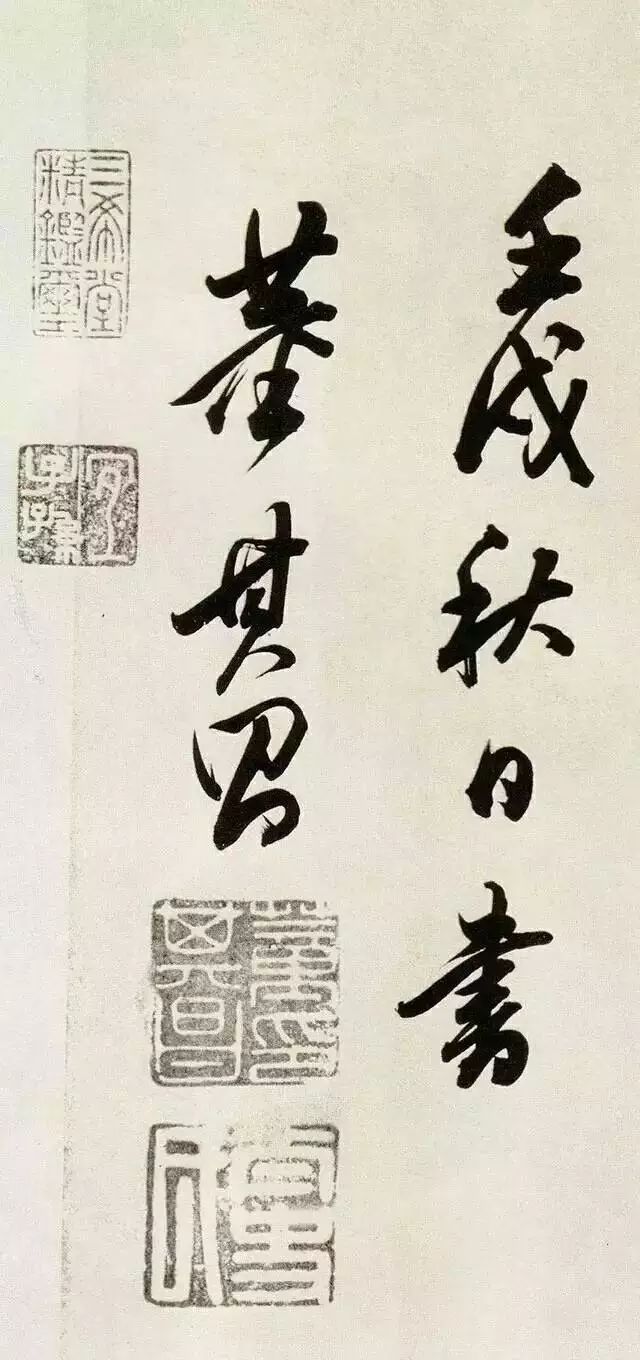 壬戌秋日書
董其昌
三希堂
精鑑璽
宜
子孫